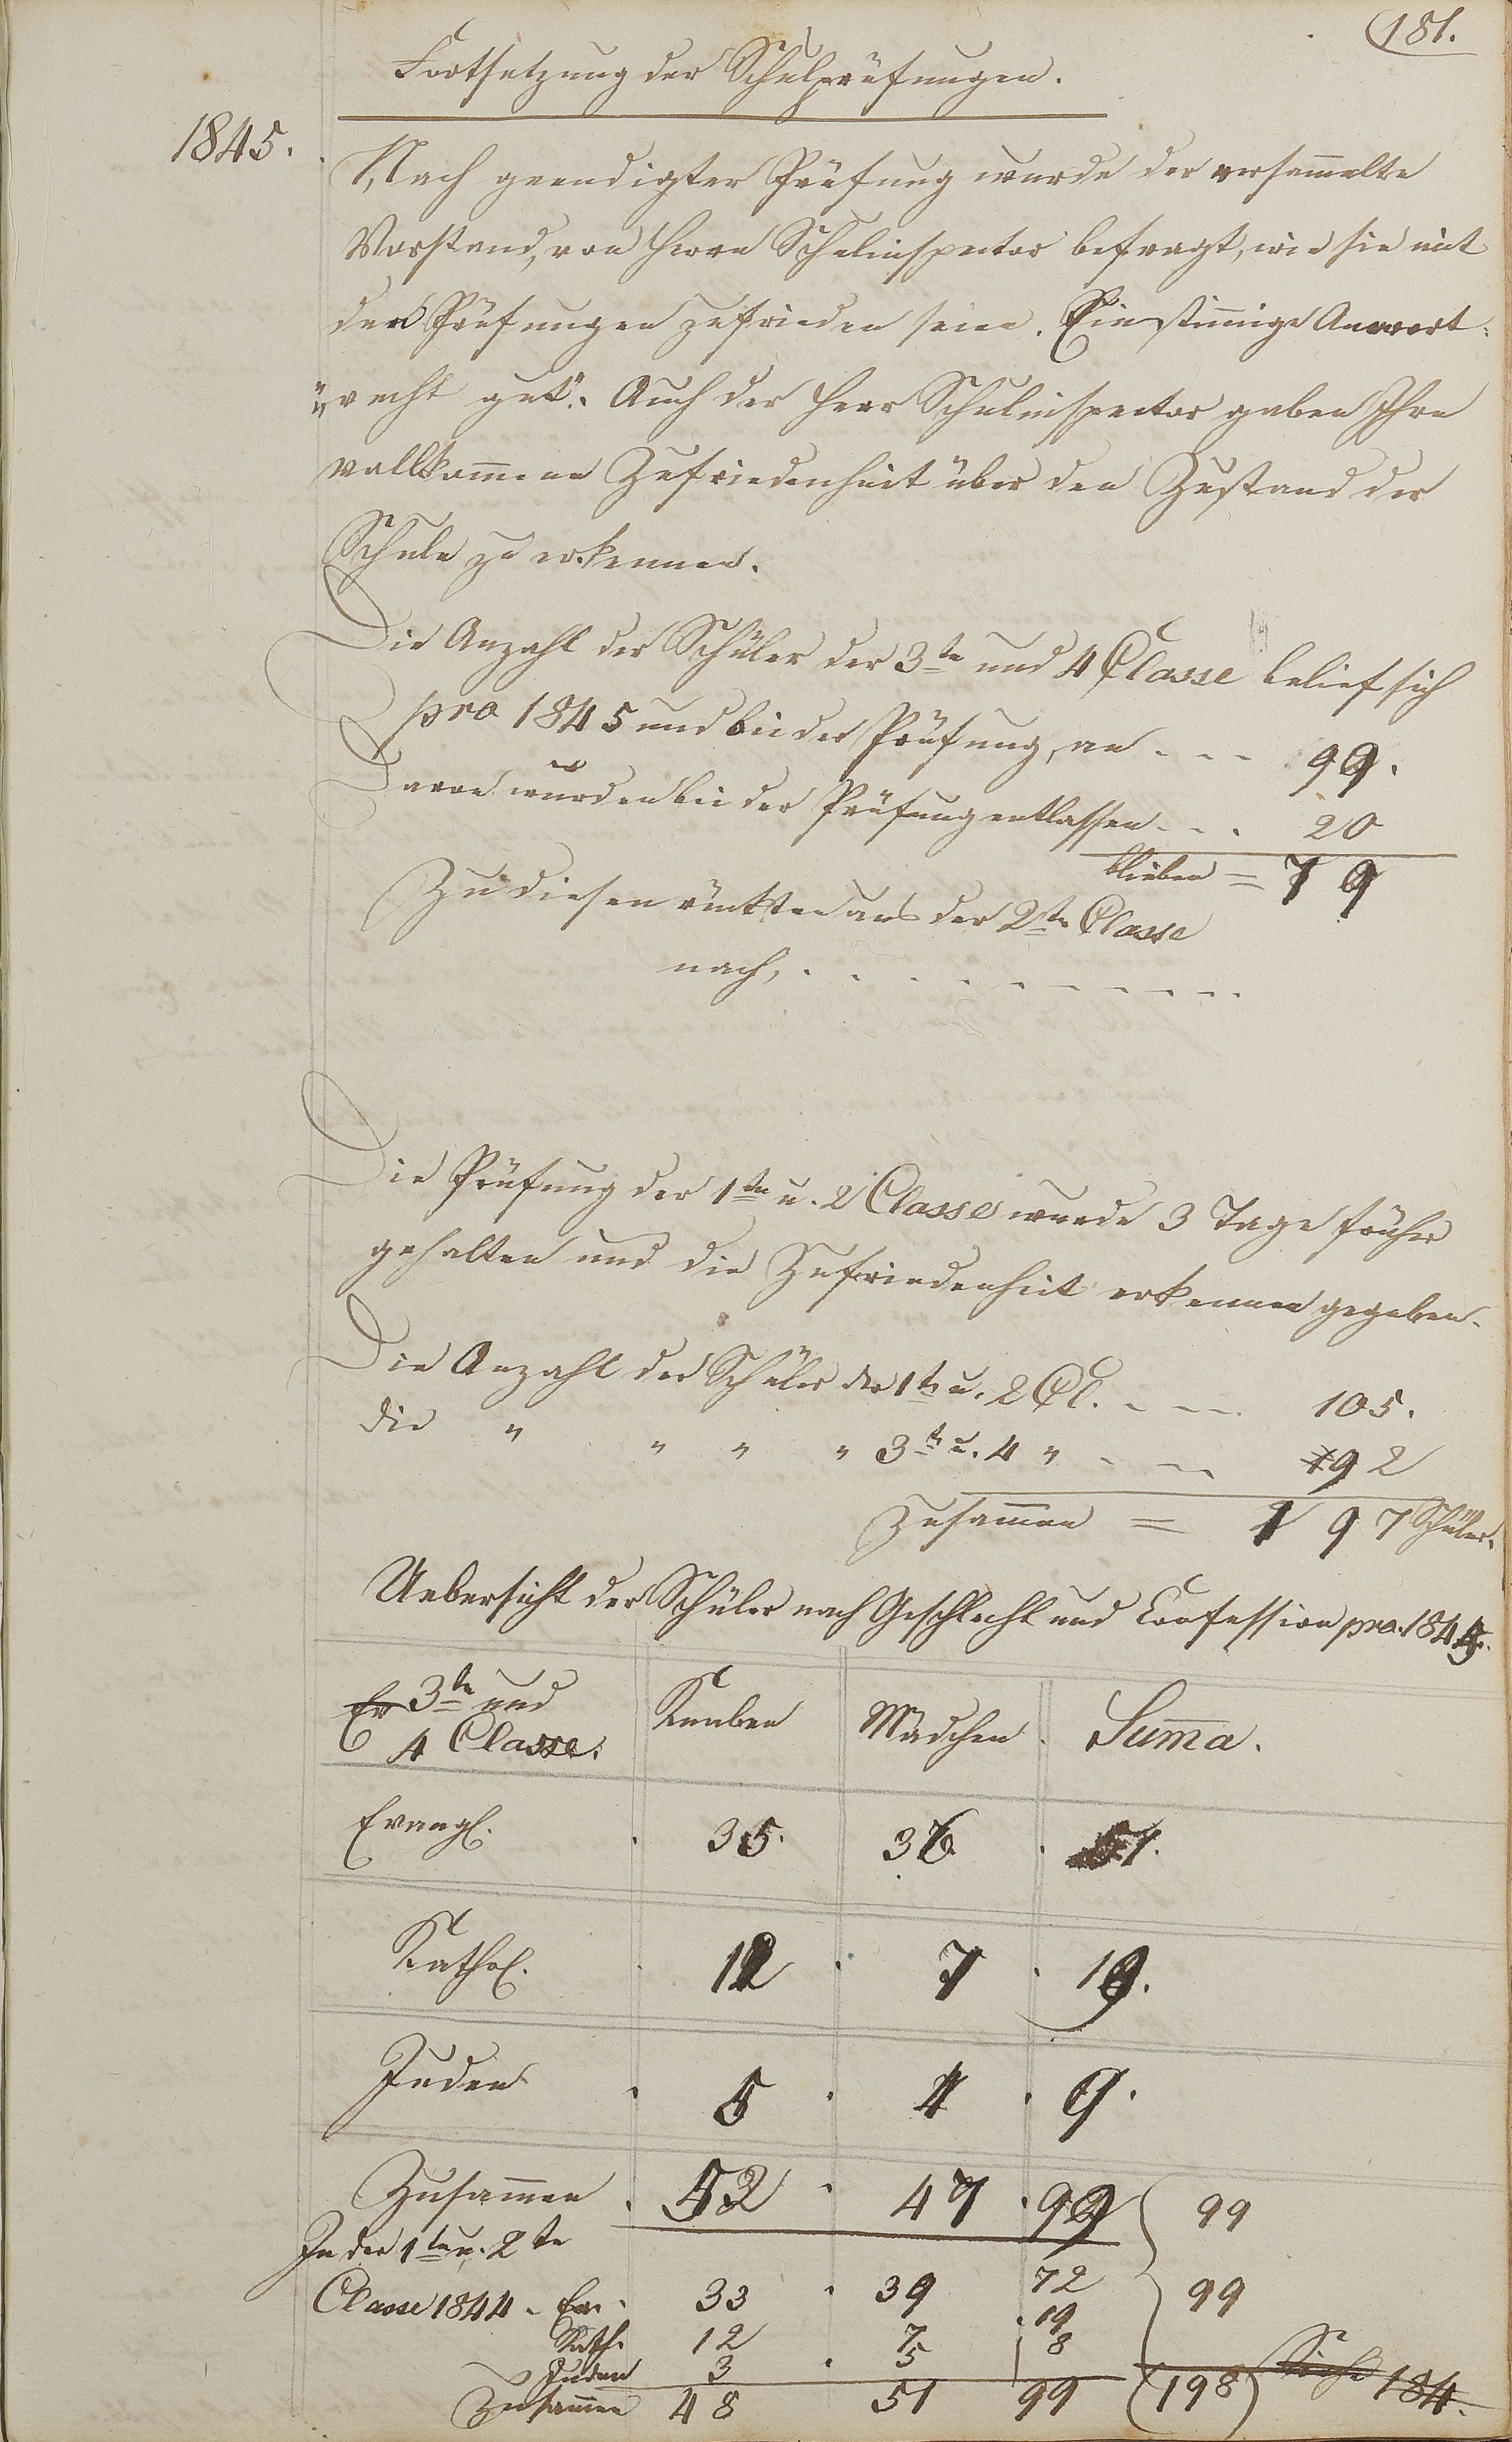 181.
Fortsetzung der Schulprüfungen.
1845.
Nach geendigter Prüfung wurde der versam̄elte
Vorstand, von Herrn Schulinspector befragt, wie sie mit
der Prüfungen zufrieden seien. Einstim̄ige Antwort:
„recht gut“. Auch der Herr Schulinspector gaben Ihre
vollkom̄ene Zufriedenheit über den Zustand der
Schule zu erkennen.
Die Anzahl der Schüler der 3te und 4 Classe belief sich
pro 1845 und bei der Prüfung, an - - - 99.
Davon wurden bei der Prüfung entlassen - - . 20
blieben = 79
Zu diesen rückten aus der 2te Classe
nach, . . . - - - - - -
Die Prüfung der 1te u. 2 Classe wurde 3 Tage früher
gehalten und die Zufriedenheit erkennen gegeben.
Die Anzahl der Schüler der 1te u. 2 Cl. - - - 105.
die " " " " 3te u. 4 " - - - 92
Zusam̄en = 197 Schüler.
Uebersicht der Schüler nach Geschlecht und Confession pro. 1845.
Ev 3te und Knaben Mädchen Sum̄a.
4 Classe.
Evangl. 35. 36 71.
Kathol. 12 7 19.
Juden 5 4 9.
Zusam̄en 52 47 99 99
In der 1te u. 2te
Classe 1844 - Ev. 33 39 72 99
Kath. 12 7 19
Juden 3 5 8
Zusam̄en 48 51 99 (198) Siehe 184.